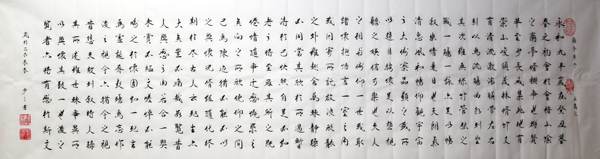 永和九年歲在癸丑暮
春之初會于會稽山陰
之蘭亭脩禊事也群賢
畢至少長咸集此地有
崇山峻領茂林脩竹又
有清流激湍映帶左右
引以為流觴曲水列坐
其次雖無絲竹管弦之
盛一觴一詠亦足以暢
敘幽情是日也天朗氣
清惠風和暢仰觀宇宙
之大俯察品類之盛所
以遊目騁懷足以極視
聽之娛信可樂也夫人
之相與俯仰一世或取
諸懷抱悟言一室之內
或因寄所託放浪形骸
之外雖趣舍萬殊靜躁
不同當其欣於所遇暫
得於己快然自足不知
老之將至及其所之既
倦情隨事遷感慨係之
矣向之所欣俯仰之間
已為陳跡猶不能不以
之興懷況脩短隨化終
期於盡古人云死生亦
大矣豈不痛哉每覽昔
人興感之由若合一契
未嘗不臨文嗟悼不能
喻之於懷固知一死生
為虛誕齊彭殤為妄作
後之視今亦猶今之視
昔悲夫故列敘時人錄
其所述雖世殊事異所
以興懷其致一也後之
覽者亦將有感於斯文